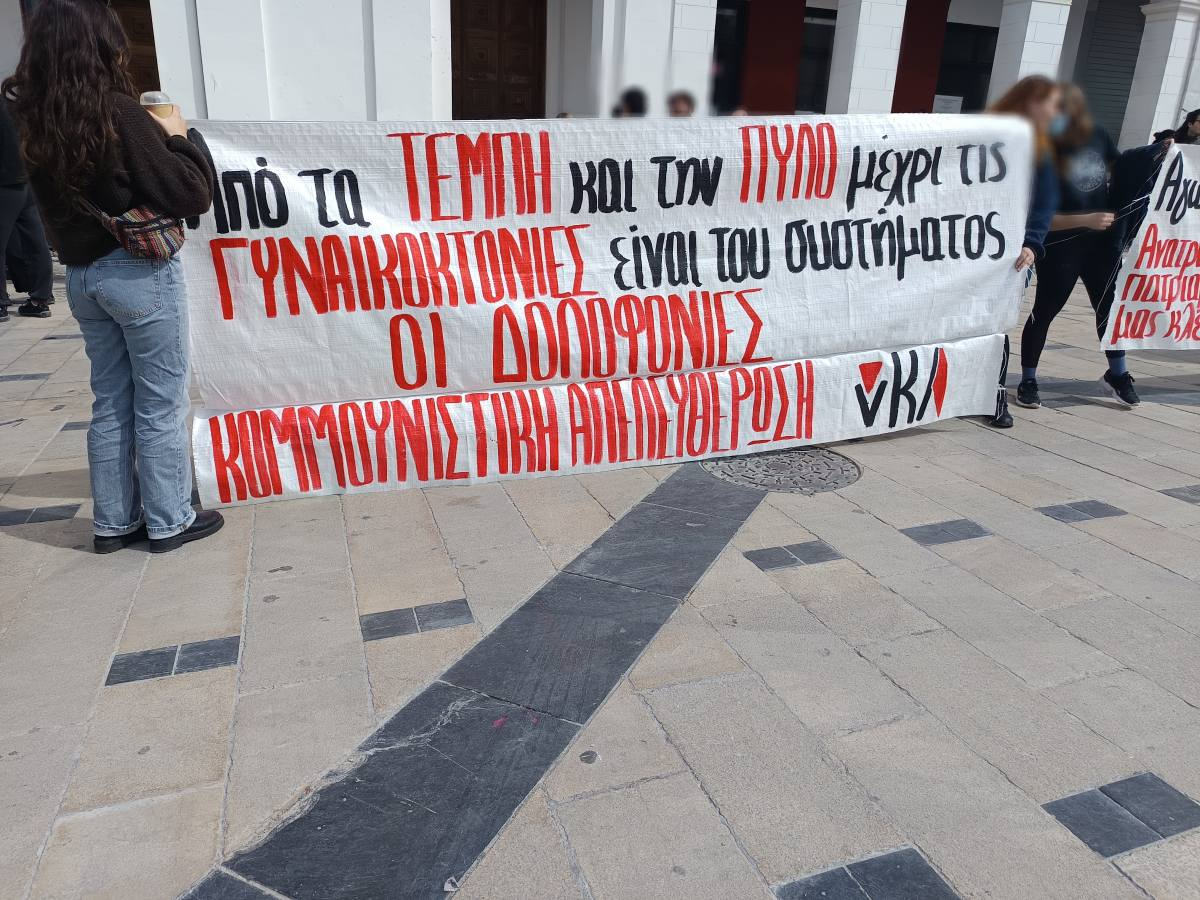 Από τα ΤΕΜΠΗ και την ΠΥΛΟ μέχρι τις
ΓΥΝΑΙΚΟΚΤΟΝΙΕΣ είναι του συστήματος
ΟΙ ΔΟΛΟΦΟΝΙΕΣ
ΚΟΜΜΟΥΝΙΣΤΙΚΗ ΑΠΕΛΕΥΘΕΡΩΣΗ νΚΑ
μας